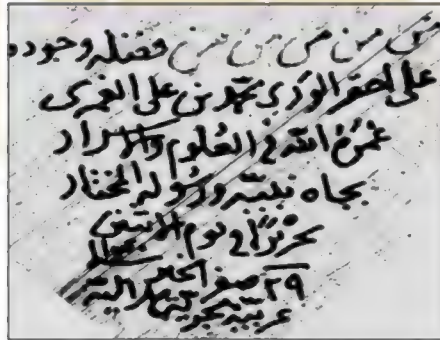 من من من من من فضله وجوده
على احقر الورى محمد بن على الغمرى
غمره الله فى العلوم والاسرار
بجاه نبيه ورسوله المختار
تحريرا فى يوم الاثنين
٢٩ صفر الخير